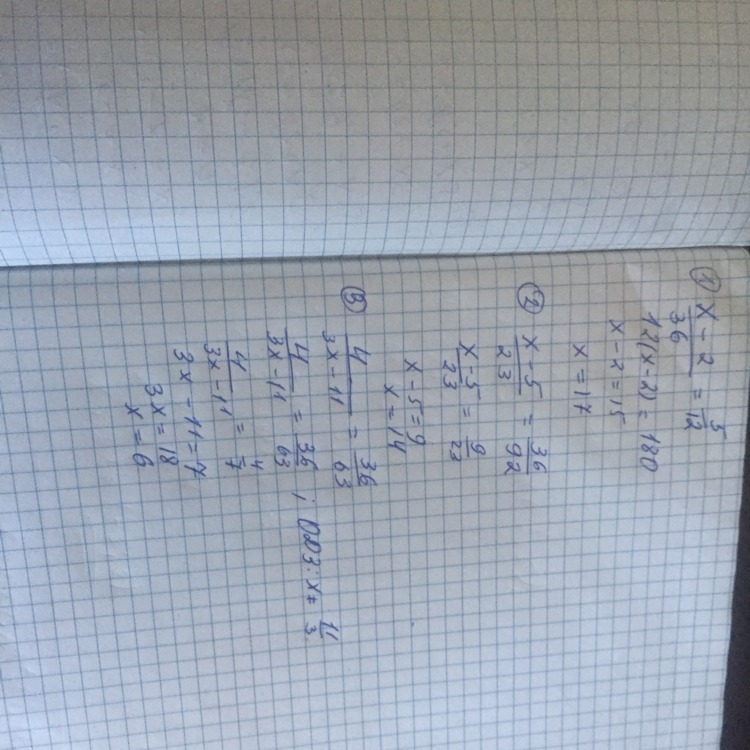 ① x-2/36 = 5/12
12(x-2) = 180
x-2=15
x=17
② x-5/23 = 36/92
x-5/23 = 9/23
x-5=9
x=14
③ 4/3x-11 = 36/63
4/3x-11 = 36/63 ; ОДЗ: x≠ 11/3
4/3x-11 = 4/7
3x-11=7
3x=18
x=6